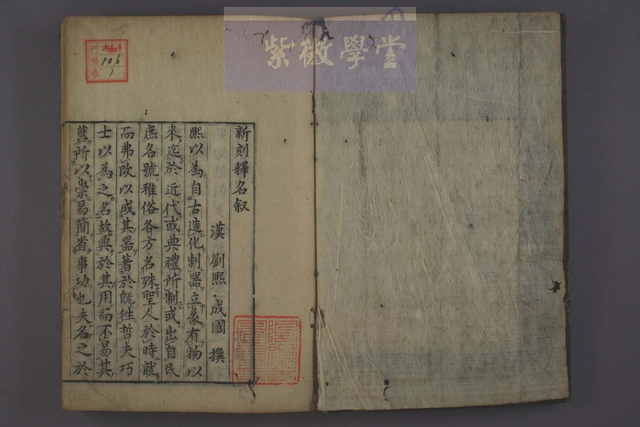 紫薇學堂
106
1
新刻釋名叙
漢 劉熙 成國 撰
熙以為自古造化制器立象有物以
來迄於近代或典禮所制或出自民
庶名號雅俗各方名殊聖人於時就
而弗改以成其器著於既往哲夫巧
士以為之名故興於其用而不易其
舊所以崇易簡省事功也夫名之於